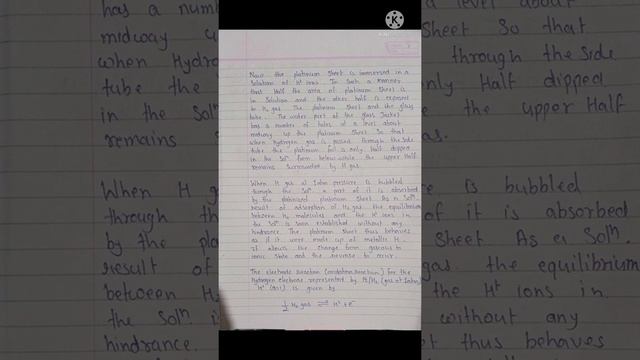 Now the platinum sheet is immersed in a
solution of H+ ions. In such a manner
that half the area of platinum sheet is
in solution and the other half is exposed
to H2 gas. The platinum sheet and the glass
tube. The wider part of the glass jacket
has a number of holes at a level about
midway up the platinum sheet so that
when hydrogen gas is passed through the side
tube the platinum foil is only half dipped
in the Solⁿ from below while the upper half
remains surrounded by H gas.
When H gas at 1atm pressure is bubbled
through the Solⁿ a part of it is absorbed
by the platinized platinum sheet As a
result of adsorption of H2 gas the equilibrium
between H2 molecules and the H+ ions in
the Solⁿ is soon established without any
hindrance. The platinum sheet thus behaves
as if it were made up of metallic H.
It allows the change from gaseous to
ionic state and the reverse to occur.
The electrode reaction (oxidation reaction) for the
Hydrogen electrode represented by Pt/H2 (gas at 1atm)
H+ (aq) is given by
1/2 H2 gas ⇌ H+ + e-